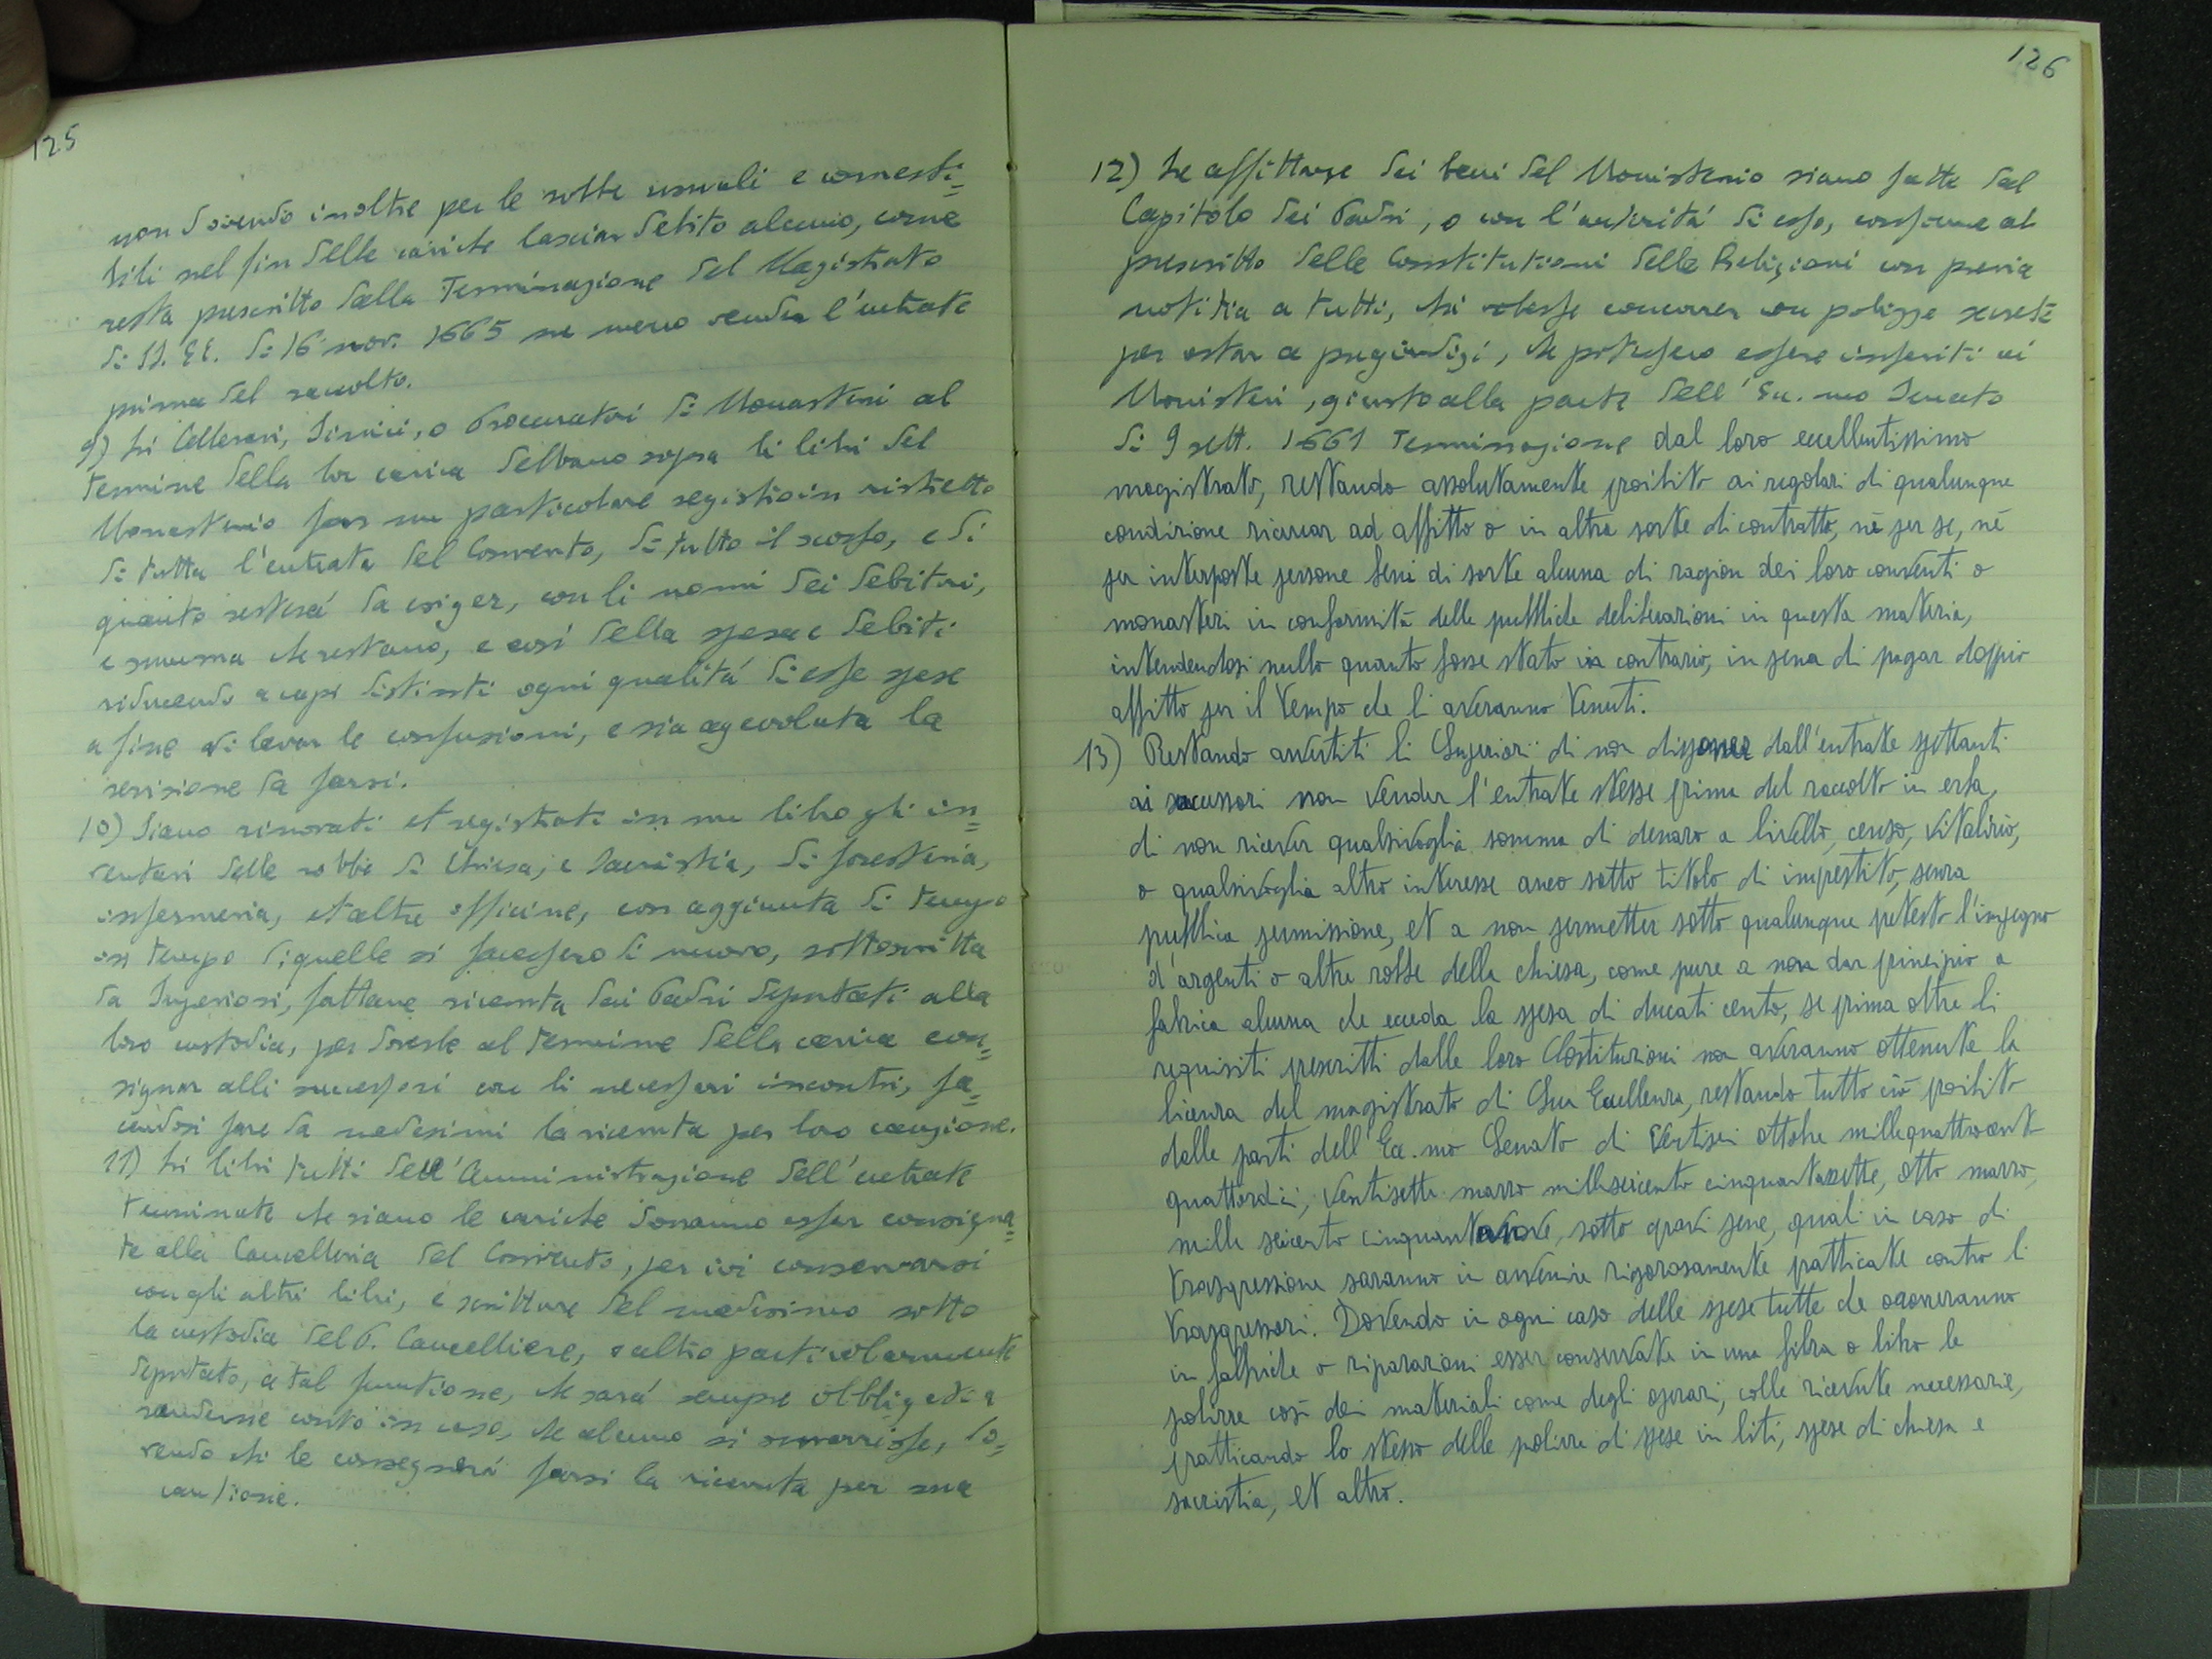 125
non dovendo inoltre per le robbe usuali e comesti=
bili nel fin delle cariche lasciar debito alcuno, come
resta prescritto dalla Terminazione del Magistrato
di SS. EE. di 16 nov. 1665 ne meno vender l'entrate
prima del raccolto.
9) Li Cellerari, Sinici, o Procuratori di Monasteri al
termine della lor carica debbano sopra li libri del
Monasterio far un particolare registro in ristretto
di tutta l'entrata del Convento, di tutto il scosso, e di
quanto resterà da esiger, con li nomi dei debitori,
e summa che restano, e così della spesa e debiti
riducendo a capi distinti ogni qualità di esse spese
a fine di levar le confusioni, e sia agevolata la
revisione da farsi.
10) Siano rinovati et registrati in un libro gli in=
ventari delle robbe di Chiesa, e Sacristia, di foresteria,
infermeria, et altre officine, con aggiunta di tempo
in tempo di quelle si facessero di nuovo, sottoscritta
da Superiori, fattane ricevuta dai Padri deputati alla
loro custodia, per doverle al termine della carica con=
signar alli successori con li necessari incontri, fa=
cendosi fare da medesimi la ricevuta per loro cauzione.
11) Li libri tutti dell'Amministrazione dell'entrate
terminate che siano le cariche doranno esser consigna=
te alla Cancelleria del Convento, per ivi conservarsi
con gli altri libri, e scritture del medesimo sotto
la custodia del P. Cancelliere, o altro particolarmente
deputato, a tal funtione, che sarà sempre obbligato a
renderne conto in caso, che alcuno si smarrisse, do=
vendo chi le consegnerà farsi la ricevuta per sua
cautione.
126
12) Le affittanze dei beni del Monisterio siano fatte dal
Capitolo dei Padri, o con l'autorità di esso, conforme al
prescritto delle Constitutioni delle Religioni con previa
notitia a tutti, chi volesse concorrer con polizze secrete
per ostar a pregiudizi, che potessero essere inferiti ai
Monisteri, giusto alla parte dell'Ecc.mo Senato
di 9 sett. 1661 Terminazione dal loro eccellentissimo
magistrato, restando assolutamente proibito ai regolari di qualunque
condizione ricever ad affitto o in altra sorte di contratto, nè per se, nè
per interposte persone beni di sorte alcuna di ragion dei loro conventi o
monasteri in conformità delle pubbliche deliberazioni in questa materia,
intendendosi nullo quanto fosse stato in contrario, in pena di pagar doppio
affitto per il tempo che li averanno tenuti.
13) Restando avvertiti li Superiori di non disponer dall'entrate spettanti
ai successori non vender l'entrate stesse prima del raccolto in erba,
di non ricever qualsivoglia somma di denaro a livello, censo, vitalizio,
o qualsivoglia altro interesse anco sotto titolo di imprestito, senza
pubblica permissione, et a non permetter sotto qualunque pretesto l'impegno
d'argenti o altre robbe della chiesa, come pure a non dar principio a
fabrica alcuna che ecceda la spesa di ducati cento, se prima oltre li
requisiti prescritti dalle loro Costituzioni non averanno ottenute la
licenza del magistrato di Sua Eccellenza, restando tutto ciò proibito
dalle parti dell'Ecc.mo Senato di Vertisei ottobre millequattrocent
quattordici, ventisette marzo milleseicento cinquantasette, otto marzo,
mille seicento cinquantanove, sotto gravi pene, quali in caso di
trasgressione saranno in avvenire rigorosamente pratticate contro li
trasgressori. Dovendo in ogni caso delle spese tutte che occorreranno
in fabbriche o riparazioni esser conservate in una filza o libro le
polizze così dei materiali come degli operari, colle ricevute necessarie,
pratticando lo stesso delle polizze di spese in liti, spese di chiesa e
sacristia, et altro.